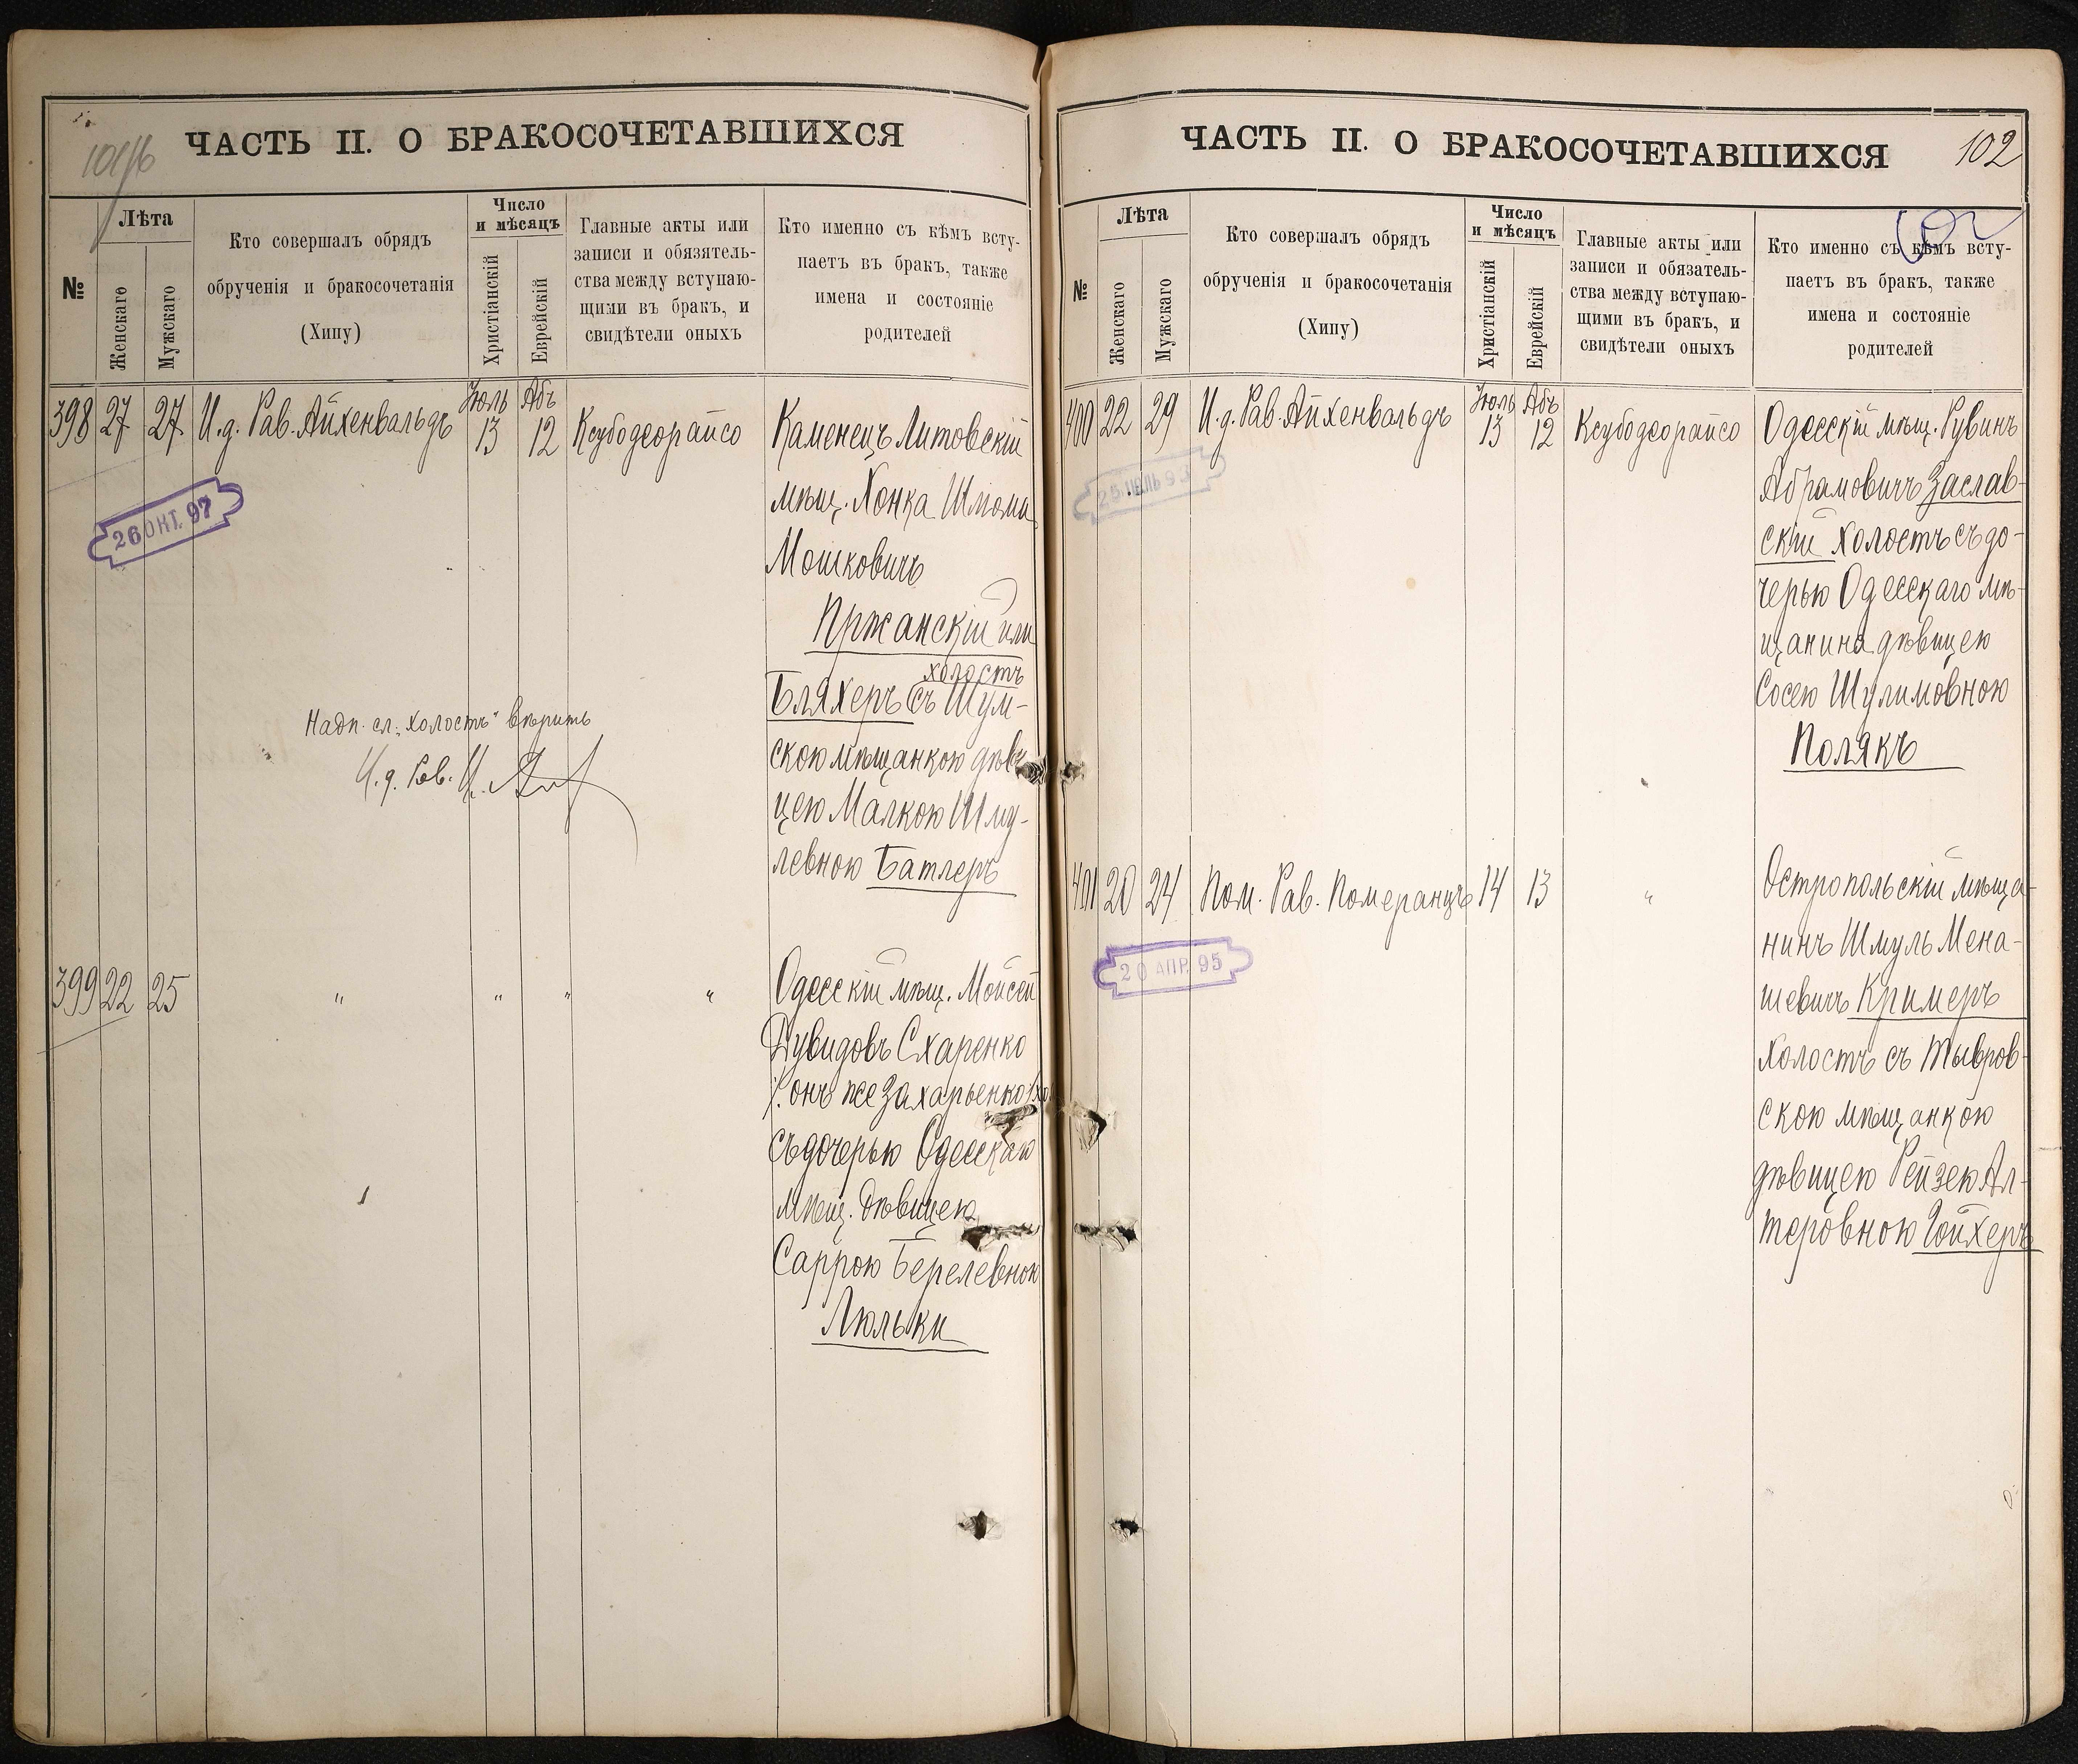 ЧАСТЬ II. О БРАКОСОЧЕТАВШИХСЯ
№
Лѣта
Женскаго
Мужскаго
Кто совершалъ обрядъ
обрученія и бракосочетанія
(Хипу)
Число
и мѣсяцъ
Христіанскій
Еврейскій
Главные акты или
записи и обязатель-
ства между вступаю-
щими въ бракъ, и
свидѣтели оныхъ
Кто именно съ кѣмъ всту-
паетъ въ бракъ, также
имена и состояніе
родителей
398 27 27 И.д. Рав. Айхенвальдъ Іюль 13 Абъ 12 Ксубодеорайсо
Каменецъ Литовскій
мѣщ. Хонка Шлома
Мошковичъ
Пржанскій или
холостъ
Бляхеръ съ Шум-
скою мѣщанкою дѣви-
цею Малкою Шму-
левною Батлеръ
26 ОКТ. 97
Надп. сл. „холостъ" вѣрить
И.д. Рав.
399 22 25 " " " "
Одесскій мѣщ. Мойсей
Дувидовъ Схаренко
онъ же Захарьенко
съ дочерью Одесскаго
мѣщ. дѣвицею
Саррою Берелевною
Люльки
ЧАСТЬ II. О БРАКОСОЧЕТАВШИХСЯ
102
102
№
Лѣта
Женскаго
Мужскаго
Кто совершалъ обрядъ
обрученія и бракосочетанія
(Хипу)
Число
и мѣсяцъ
Христіанскій
Еврейскій
Главные акты или
записи и обязатель-
ства между вступаю-
щими въ бракъ, и
свидѣтели оныхъ
Кто именно съ кѣмъ всту-
паетъ въ бракъ, также
имена и состояніе
родителей
400 22 29 И.д. Рав. Айхенвальдъ Іюль 13 Абъ 12 Ксубодеорайсо
Одесскій мѣщ. Рувинъ
Абрамовичъ Заслав-
скій холостъ съ до-
черью Одесскаго мѣ-
щанина дѣвицею
Сосею Шулимовною
Полякъ
401 20 24 Пом. Рав. Померанцъ 14 13 "
Остропольскій мѣща-
нинъ Шмуль Мена-
шевичъ Кримеръ
холостъ съ Тывров-
скою мѣщанкою
дѣвицею Рейзею Ал-
теровною Гойхеръ
20 АПР. 95